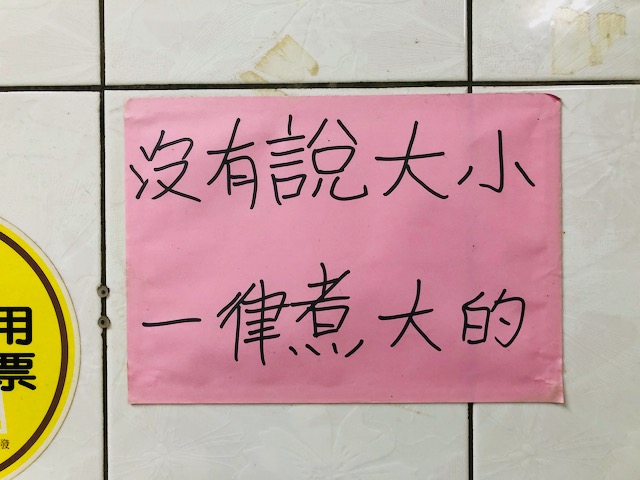 沒有說大小
一律煮大的
用
票
發